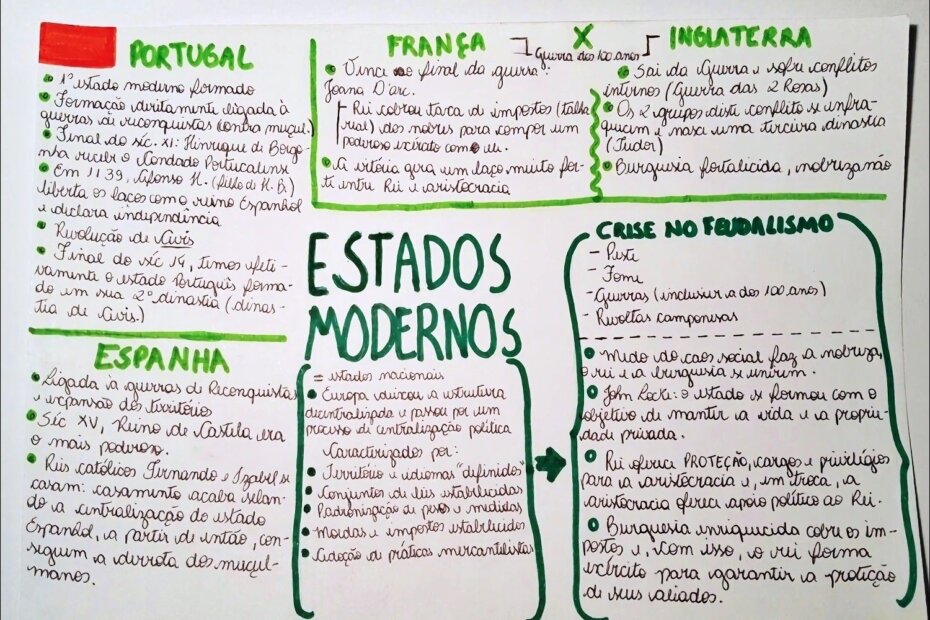 PORTUGAL
• 1º estado moderno formado
• Formação diretamente ligada à
guerras de reconquistas (contra muçul.)
• Final do séc. XI: Henrique de Borgo-
nha recebe o Condado Portucalense
• Em 1139, Afonso H. (filho de H. B.)
liberta os laços com o reino Espanhol
e declara independência
• Revolução de Avis
• Final do séc 14, temos efeti-
vamente o estado Português forma-
do em sua 2º dinastia (dinas-
tia de Avis.)
ESPANHA
• Ligada à guerras de Reconquistas
e expansão dos territórios
• Séc XV, Reino de Castela era
o mais poderoso.
• Reis católicos Fernando e Izabel se
casam: casamento acaba selan-
do a centralização do estado
Espanhol, a partir de então, con-
seguem a derrota dos muçul-
manos.
FRANÇA X INGLATERRA
Guerra dos 100 anos
• Vence ao final da guerra:
Joana D'arc.
Rei cobrou taxa de impostos (talha
real) dos nobres para compor um
poderoso exército com ele.
• A vitória gera um laço muito for-
te entre Rei e aristocracia
• Sai da Guerra e sofre conflitos
internos (Guerra das 2 Rosas)
• Os 2 grupos deste conflito se enfra-
quecem e nasce uma terceira dinastia
(Tudor)
• Burguesia fortalecida, nobreza não
ESTADOS
MODERNOS
= estados nacionais
• Europa deixou a estrutura
decentralizada e passou por um
processo de centralização política
Caracterizados por:
• Território e idiomas "definidos"
• Conjuntos de leis estabelecidas
• Padronização de pesos e medidas
• Moedas e impostos estabelecidos
• Adoção de práticas mercantilistas
CRISE NO FEUDALISMO
- Peste
- Fome
- Guerras (inclusive a dos 100 anos)
- Revoltas camponesas
• Medo do caos social faz a nobreza,
o rei e a burguesia se unirem.
• John Locke: o estado se formou com o
objetivo de manter a vida e a proprie-
dade privada.
• Rei oferece PROTEÇÃO, cargos e privilégios
para a aristocracia e, em troca, a
aristocracia oferece apoio político ao Rei.
• Burguesia enriquecida cobre os im-
postos e, com isso, o rei forma
exército para garantir a proteção
de seus aliados.